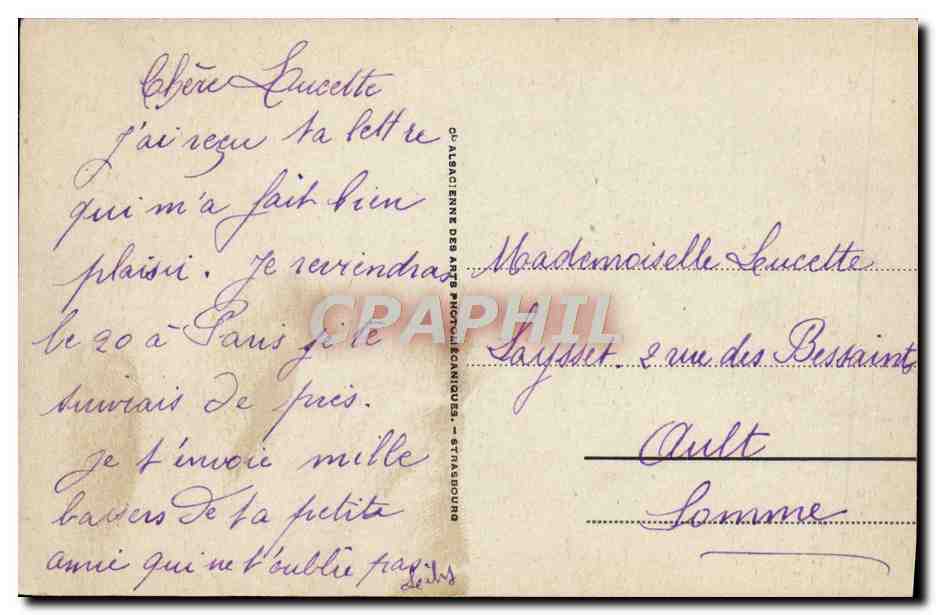 Chère Lucette
J'ai reçu ta lettre
qui m'a fait bien
plaisir. Je reviendras
le 20 à Paris je te
suivrais de près.
je t'envoie mille
baisers de ta petite
amie qui ne t'oublie pas
Cie ALSACIENNE DES ARTS PHOTOMÉCANIQUES. - STRASBOURG
Mademoiselle Lucette
Laysset. 2 rue des Bessaints
Ault
Somme
CPAPHIL